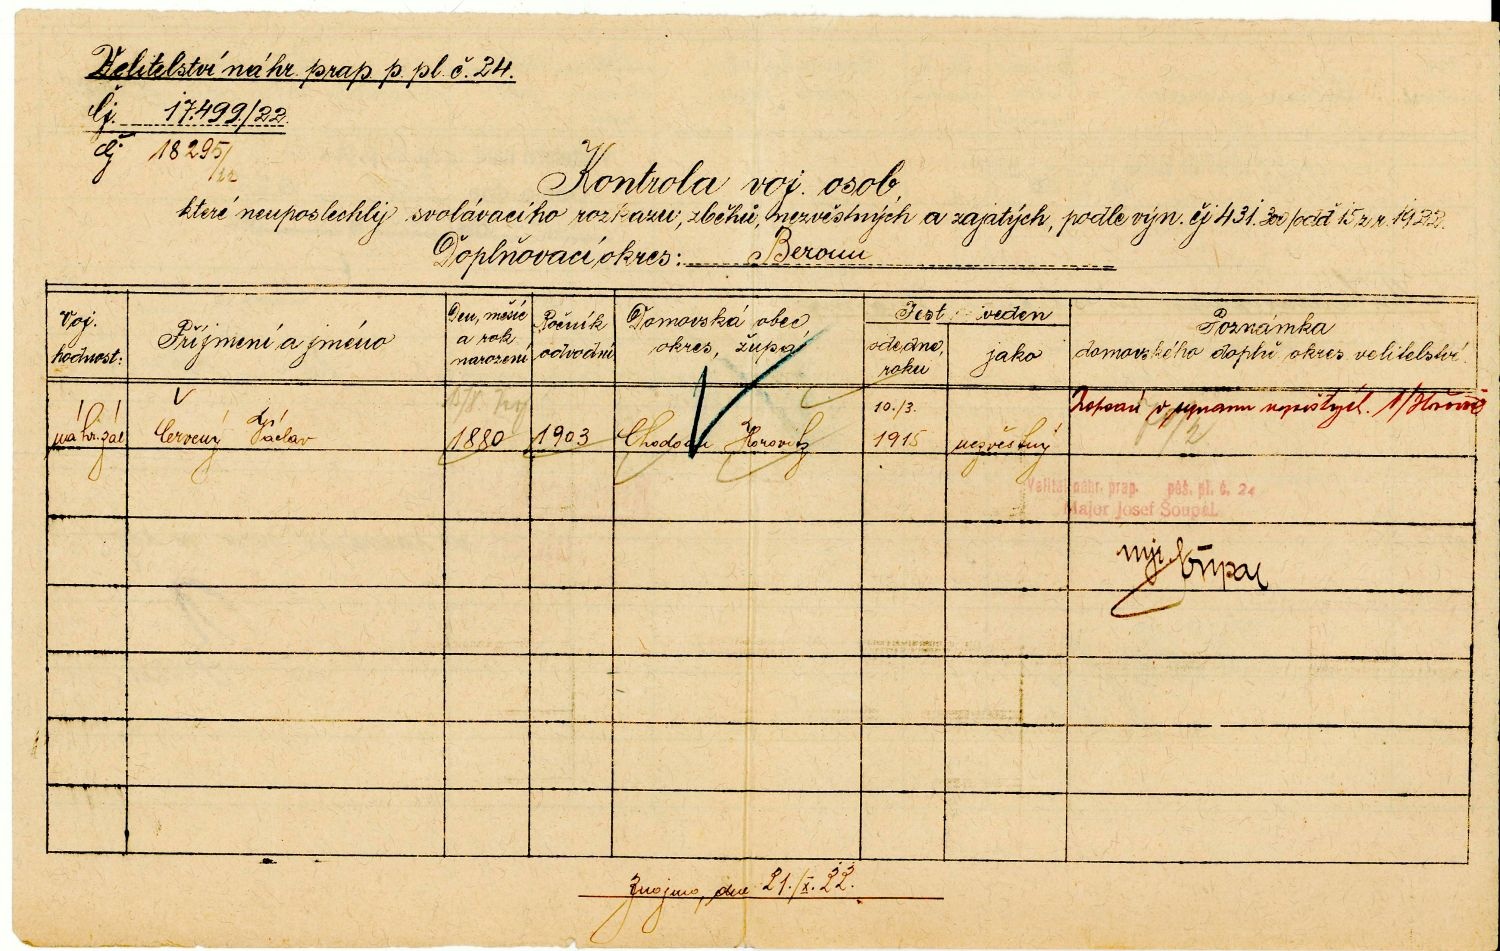 Velitelství náhr. prap. p. pl. č. 24.
Čj. 17.499./22.
čj 18295/22
Kontrola voj. osob,
které neuposlechly svolávacího rozkazu, zběhů, nezvěstných a zajatých, podle výn. čj 431. /odd 15, z r. 1922.
Doplňovací okres: Beroun
Voj. hodnost:
Příjmení a jméno
Den, měsíc a rok narození
Ročník odvodní
Domovská obec, okres, župa
Jest veden
ode dne, roku
jako
Poznámka domovského doplň. okres. velitelství
náhr. zál
Červený Václav
1880
1903
Chodoun Hořovitz
10./3. 1915
nezvěstný
Zapsán v
Velitel náhr. prap. pěš. pl. č. 24
Major Josef Šoupal.
mjr. Šoupal
Znojmo, dne 21./X. 22.